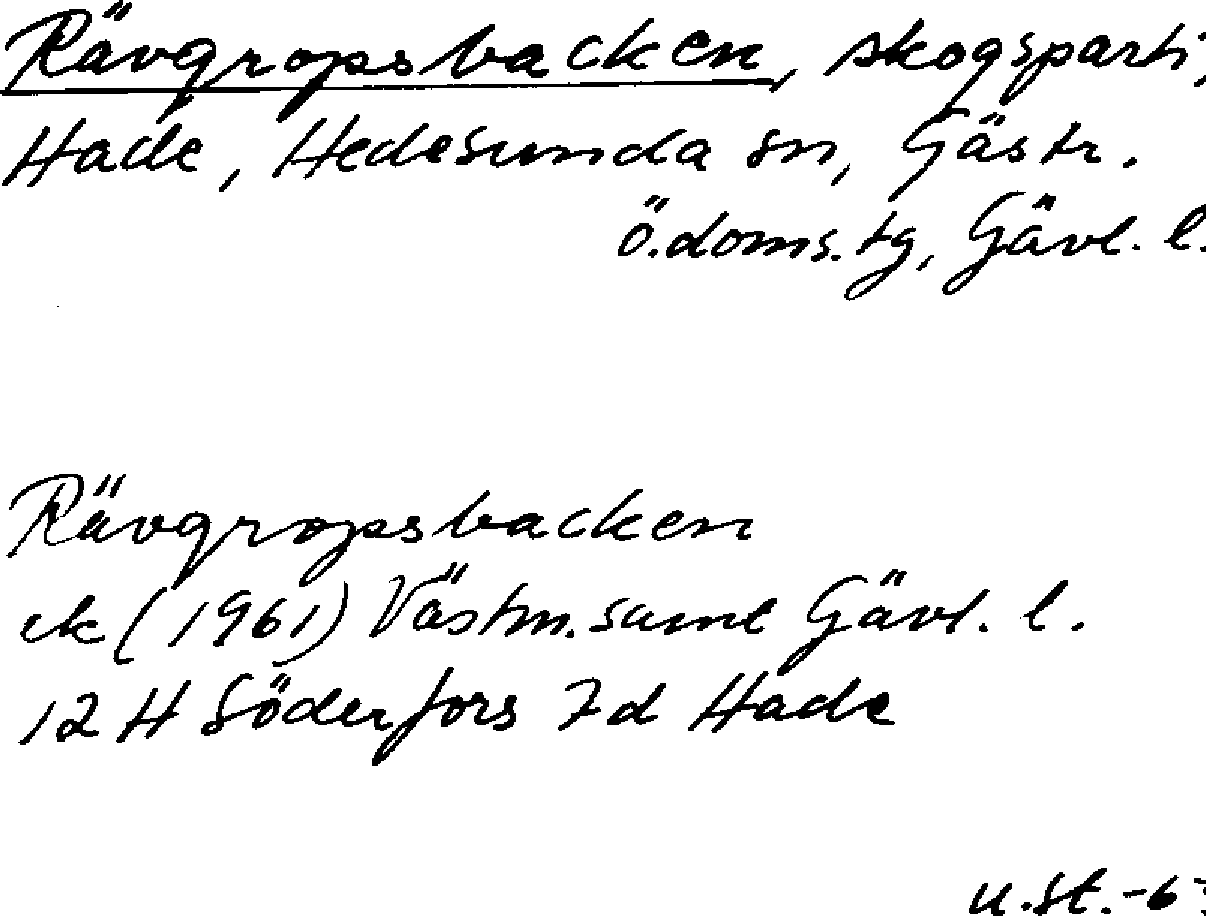 Rävgropsbacken, skogsparti,
Hade, Hedesunda sn, Gästr.
ö. doms. tg, Gävl. l.
Rävgropsbacken
ek (1961) Västm. saml Gävl. l.
12 H Söderfors 7d Hade
u.st.-6